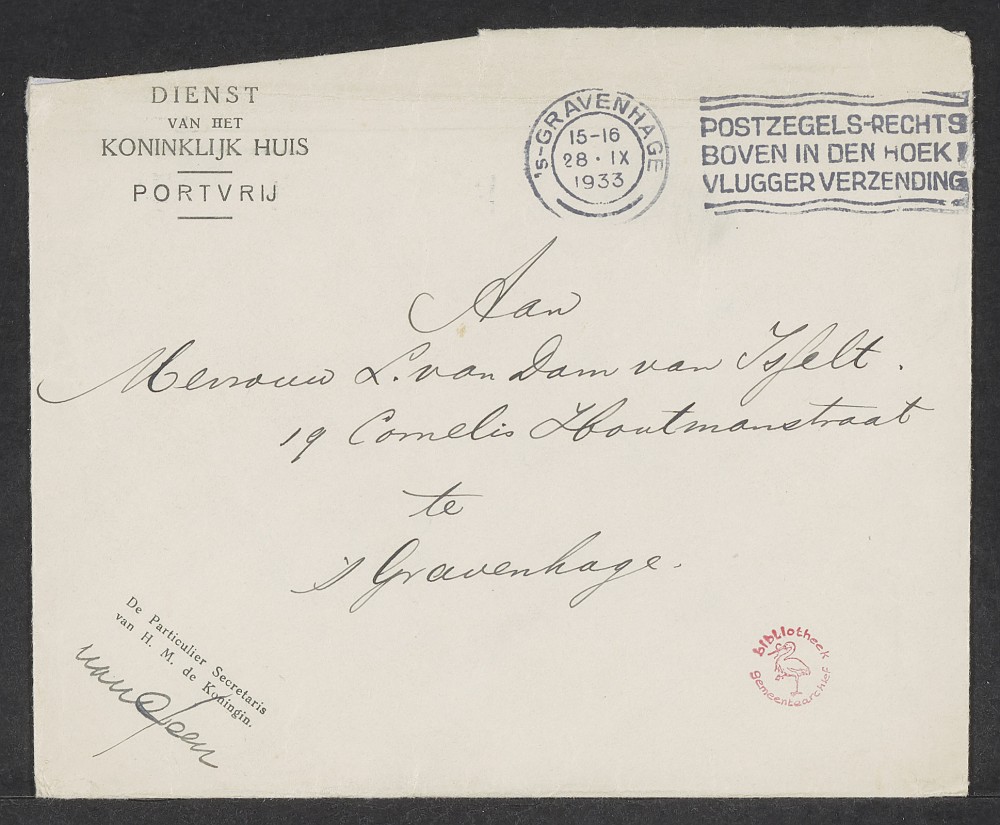 DIENST
VAN HET
KONINKLIJK HUIS
PORTVRIJ
'S-GRAVENHAGE
15-16
28 · IX
1933
POSTZEGELS-RECHTS
BOVEN IN DEN HOEK!
VLUGGER VERZENDING
Aan
Mevrouw L. van Dam van Isselt.
19 Cornelis Houtmanstraat
te
's Gravenhage.
De Particulier Secretaris
van H. M. de Koningin.
van Geen
bibliotheek
gemeentearchief